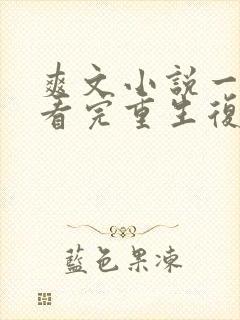 爽文小說一
看完重生復
藍色果凍